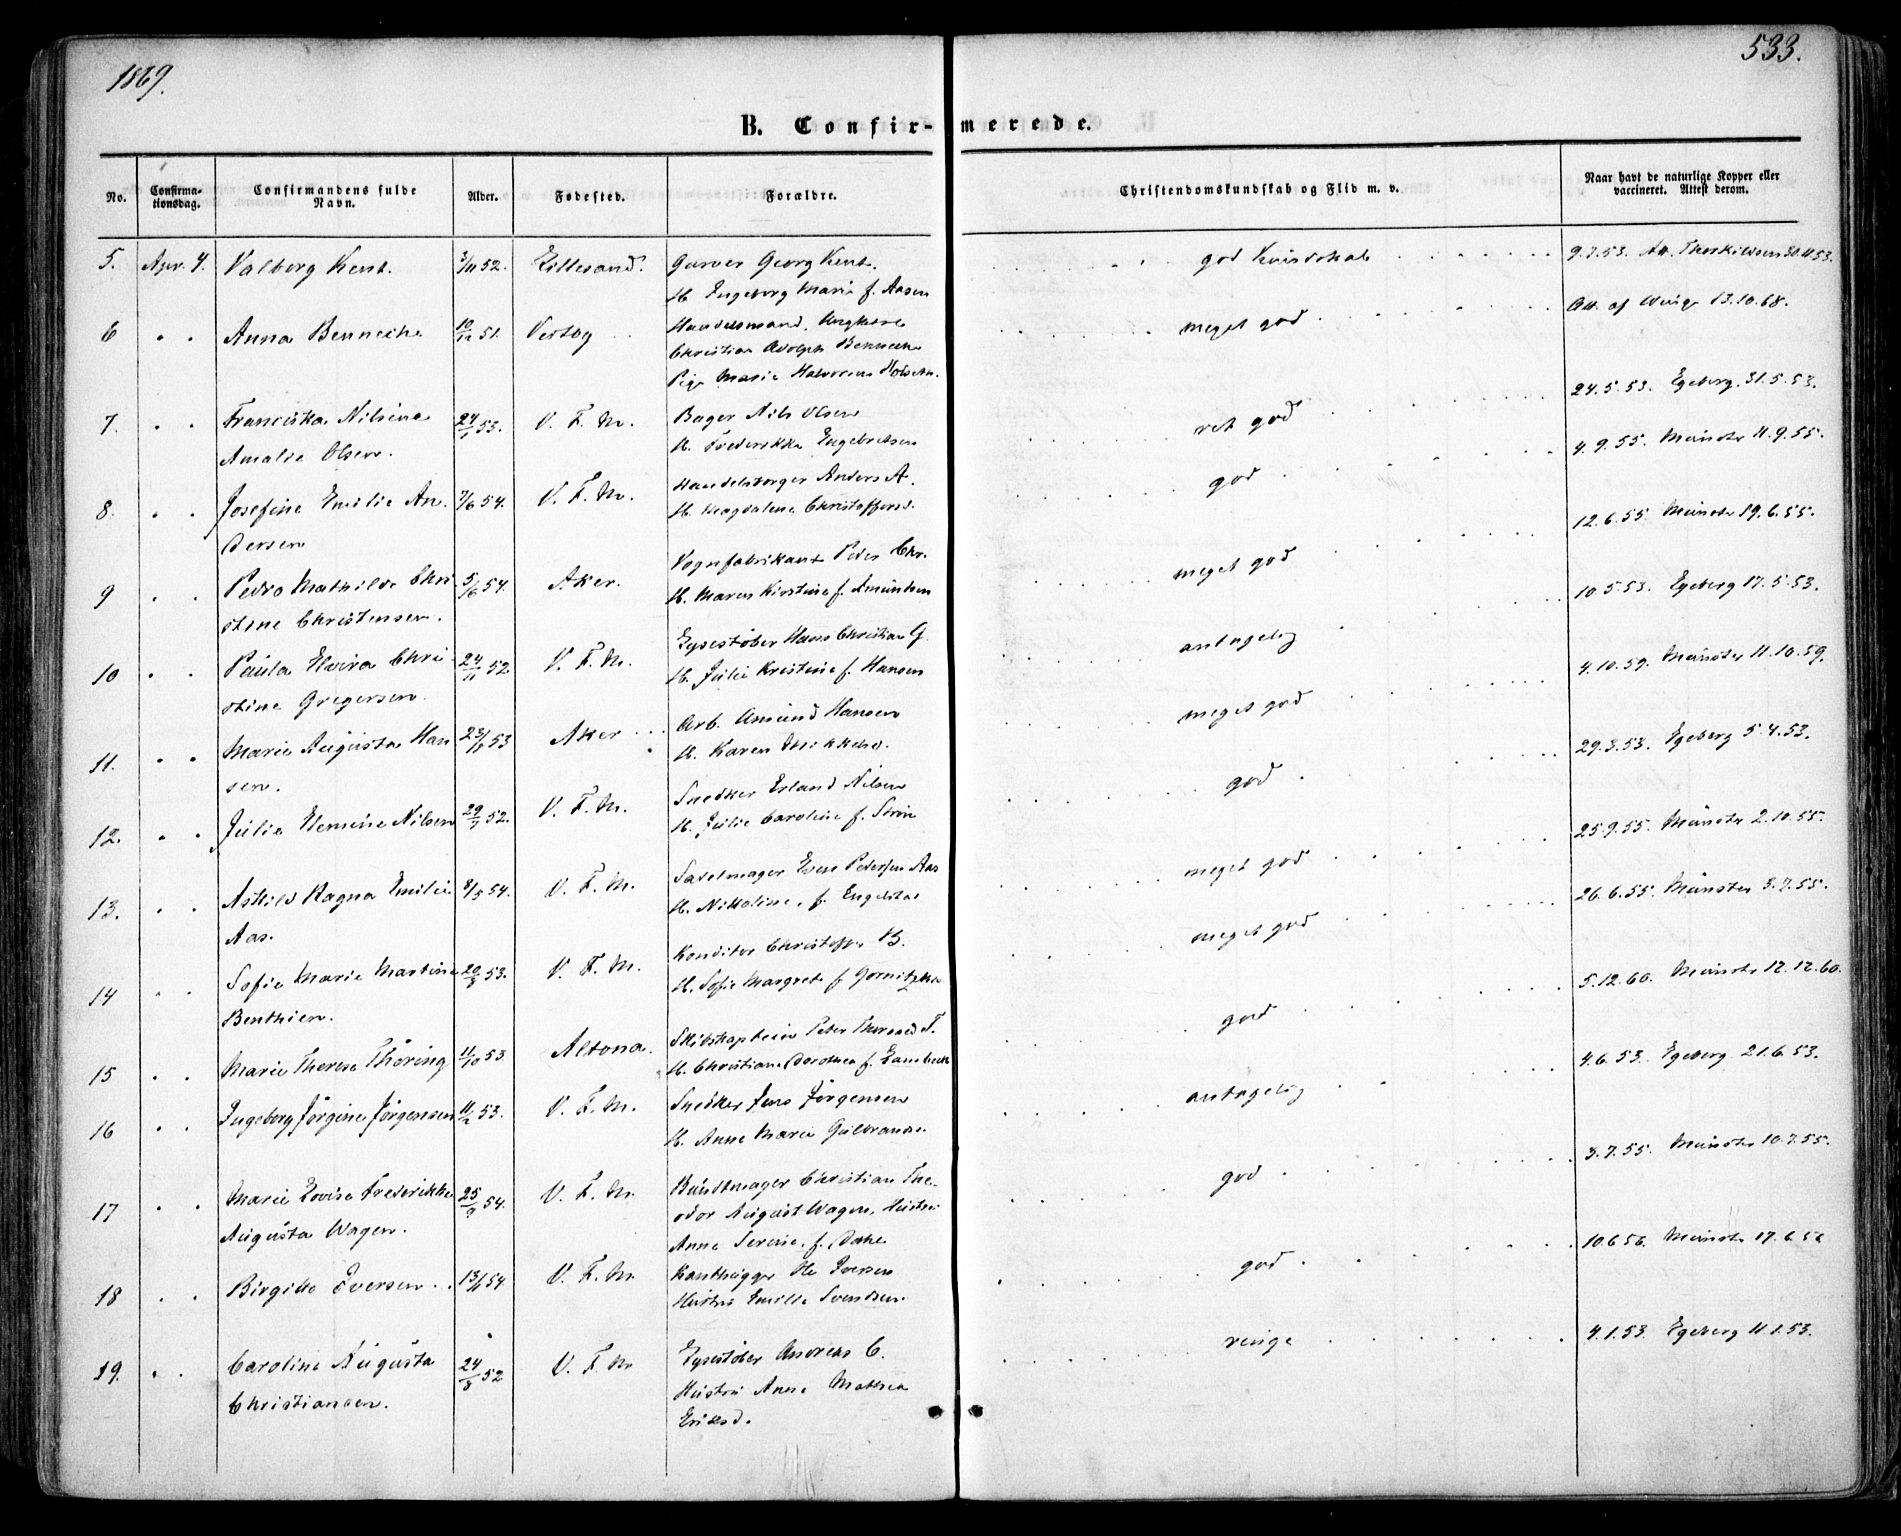 1869.
533.
B. Confir-merede.
No.
Confirma-
tionsdag.
Confirmandens fulde
Navn.
Alder.
Fødested.
Forældre.
Christendomskundskab og Flid m. v.
Naar havt de naturlige Kopper eller
vaccineret. Attest derom.
5. Apr. 4. Valborg Kent. 52. Lillesand. Garver Georg Kent. god Kundskab 9.7.53. Att. Thorkildsen 30.11.53.
H. Ingeborg Marie f. Aasen
6 " " Anna Bennecke 10/12 51. Vestby Handelsmand, Ungkarl meget god Att. af 13.10.68.
Christian Adolph Bennecke
Pige Marie Halvorsen Holseth.
7. " " Franciska Nilsine 24/1 53. V. F. M. Bager Nils Olsen ret god 24.5.53. Egeberg. 31.5.53.
Amalie Olsen. H. Frederikke Engebretsen
8. " " Josefine Emilie An- 7/6 54. V. F. M. Handelsborger Anders A. god 4.9.55. Münster 11.9.55.
dersen H. Magdalene Christoffersd.
9 " " Pedra Mathilde Chri- 5/6 54. Aker. Vognfabrikant Peder Chr. meget god 12.6.55. Münster 19.6.55.
stine Christensen. H. Maren Kirstine f. Amundsen
10 " " Paula Elvira Chri- 24/11 52 V. F. M. Lysestøber Hans Christian G. antagelig 10.5.53. Egeberg 17.5.53.
stine Gregersen. H. Julie Kristine f. Hansen
11. " " Marie Augusta Han- 53 Aker Arb. Amund Hansen meget god 4.10.59. Münster 11.10.59.
sen. H. Karen Mikkelsd.
12. " " Julie Hermine Nilsen 52. V. F. M. Snedker Erland Nilsen god 29.3.53. Egeberg 5.4.53.
H. Julie Caroline f.
13. " " Astild Ragna Emilie 8/5 54. V. F. M. Sadelmager Even Petersen Aas meget god 25.9.55. Münster 2.10.55.
Aas. H. Nikoline, f. Engelstad
14 " " Sofie Marie Martine 53. V. F. M. Konditor Christoffer B. meget god 26.6.55. Münster 3.7.55.
Benthien. H. Sofie Margrete f. Gornitzka
15 " " Marie Therese Thøring 11/10 53 Altona. Skibskaptein Peter T. god 5.12.60. Münster 12.12.60.
H. Christiane Dorothea f. Lambeck
16 " " Ingeborg Jørgine Jørgensen 11/2 53. V. F. M. Snedker Jens Jørgensen antagelig 4.6.53. Egeberg 21.6.53.
H. Anne Marie Gulbrands.
17 " " Marie Lovise Frederikke 25/9 54. V. F. M. Buntmager Christian The- god 3.7.55. Münster 10.7.55.
Augusta Wagen. odor August Wagen, Hustru
Anne Serine, f. Dahl
18 " " Birgitte Iversen 54 V. F. M. Ole Iversen god 10.6.56. Münster 17.6.56
Hustru Emilie Svendsen.
19. " " Caroline Augusta 24/8 52 V. F. M Lysestøber Andreas C. ringe 4.1.53. Egeberg 11.1.53.
Christiansen. Hustru Anne Mathea
Eriksd.